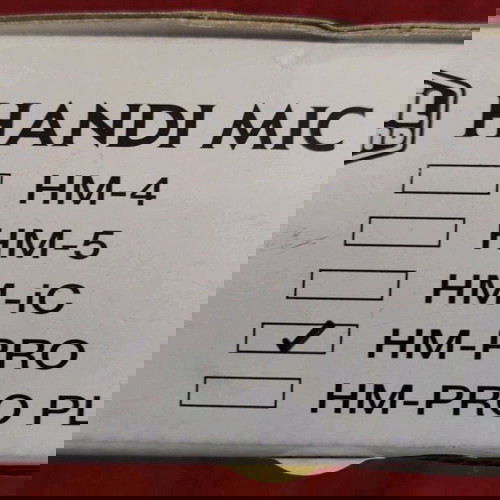 HANDI MIC
HM-4
HM-5
HM-iC
✓ HM-PRO
HM-PRO PL